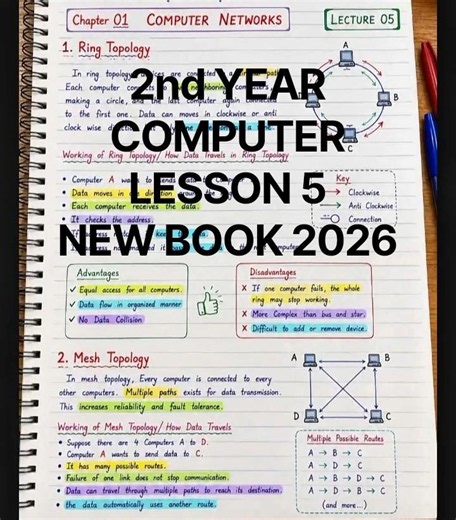 Chapter 01 COMPUTER NETWORKS
LECTURE 05
1. Ring Topology
In ring topology
Each computer connects
making a circle, and the last computer again connected
to the first one. Data can moves in clockwise or anti
clock wise
A
B
C
2nd YEAR
COMPUTER
LESSON 5
NEW BOOK 2026
Working of Ring Topology/ How Data Travels in Ring Topology
• Computer A
• Data moves in one direction
• Each computer receives the data.
• It checks the address.
Key
Clockwise
Anti Clockwise
Connection
Advantages
✓ Equal access for all computers.
✓ Data flow in organized manner
✓ No Data Collision
Disadvantages
X If one computer fails, the whole
ring may stop working.
X More Complex than bus and star.
X Difficult to add or remove device.
2. Mesh Topology
In mesh topology, Every computer is connected to every
other computers. Multiple paths exists for data transmission.
This increases reliability and fault tolerance.
A
B
D
C
Working of Mesh Topology/ How Data Travels
• Suppose there are 4 Computers A to D.
• Computer A wants to send data to C.
• It has many possible routes.
• Failure of one link does not stop communication.
• Data can travel through multiple paths to reach its destination.
• the data automatically uses another route.
Multiple Possible Routes
A → B → C
A → D → C
A → B → D → C
A → D → B → C
(and more...)